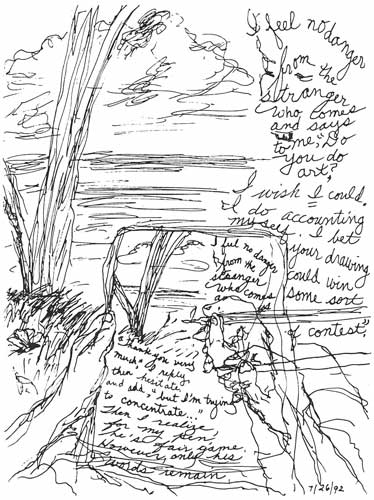 I feel no danger
from the
stranger
who comes
and says
to me, "Do
you do
art?
I wish I could.
I do accounting
myself. I bet
your drawing
could win
some sort
of contest."
I feel no danger
from the
stranger
who comes
an
"thank you very
much" I reply
then hesitate
and add, "but I'm trying
to concentrate..."
Then I realize
for my pen
he's fair game
However, only his
words remain.
7/26/92